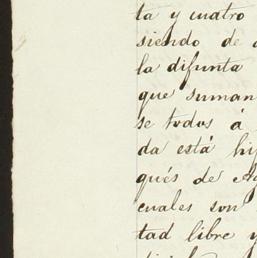 ta y cuatro
siendo de
la difunta
que suman
se todos á
da está hi
qués de
cuales son
tad libre y